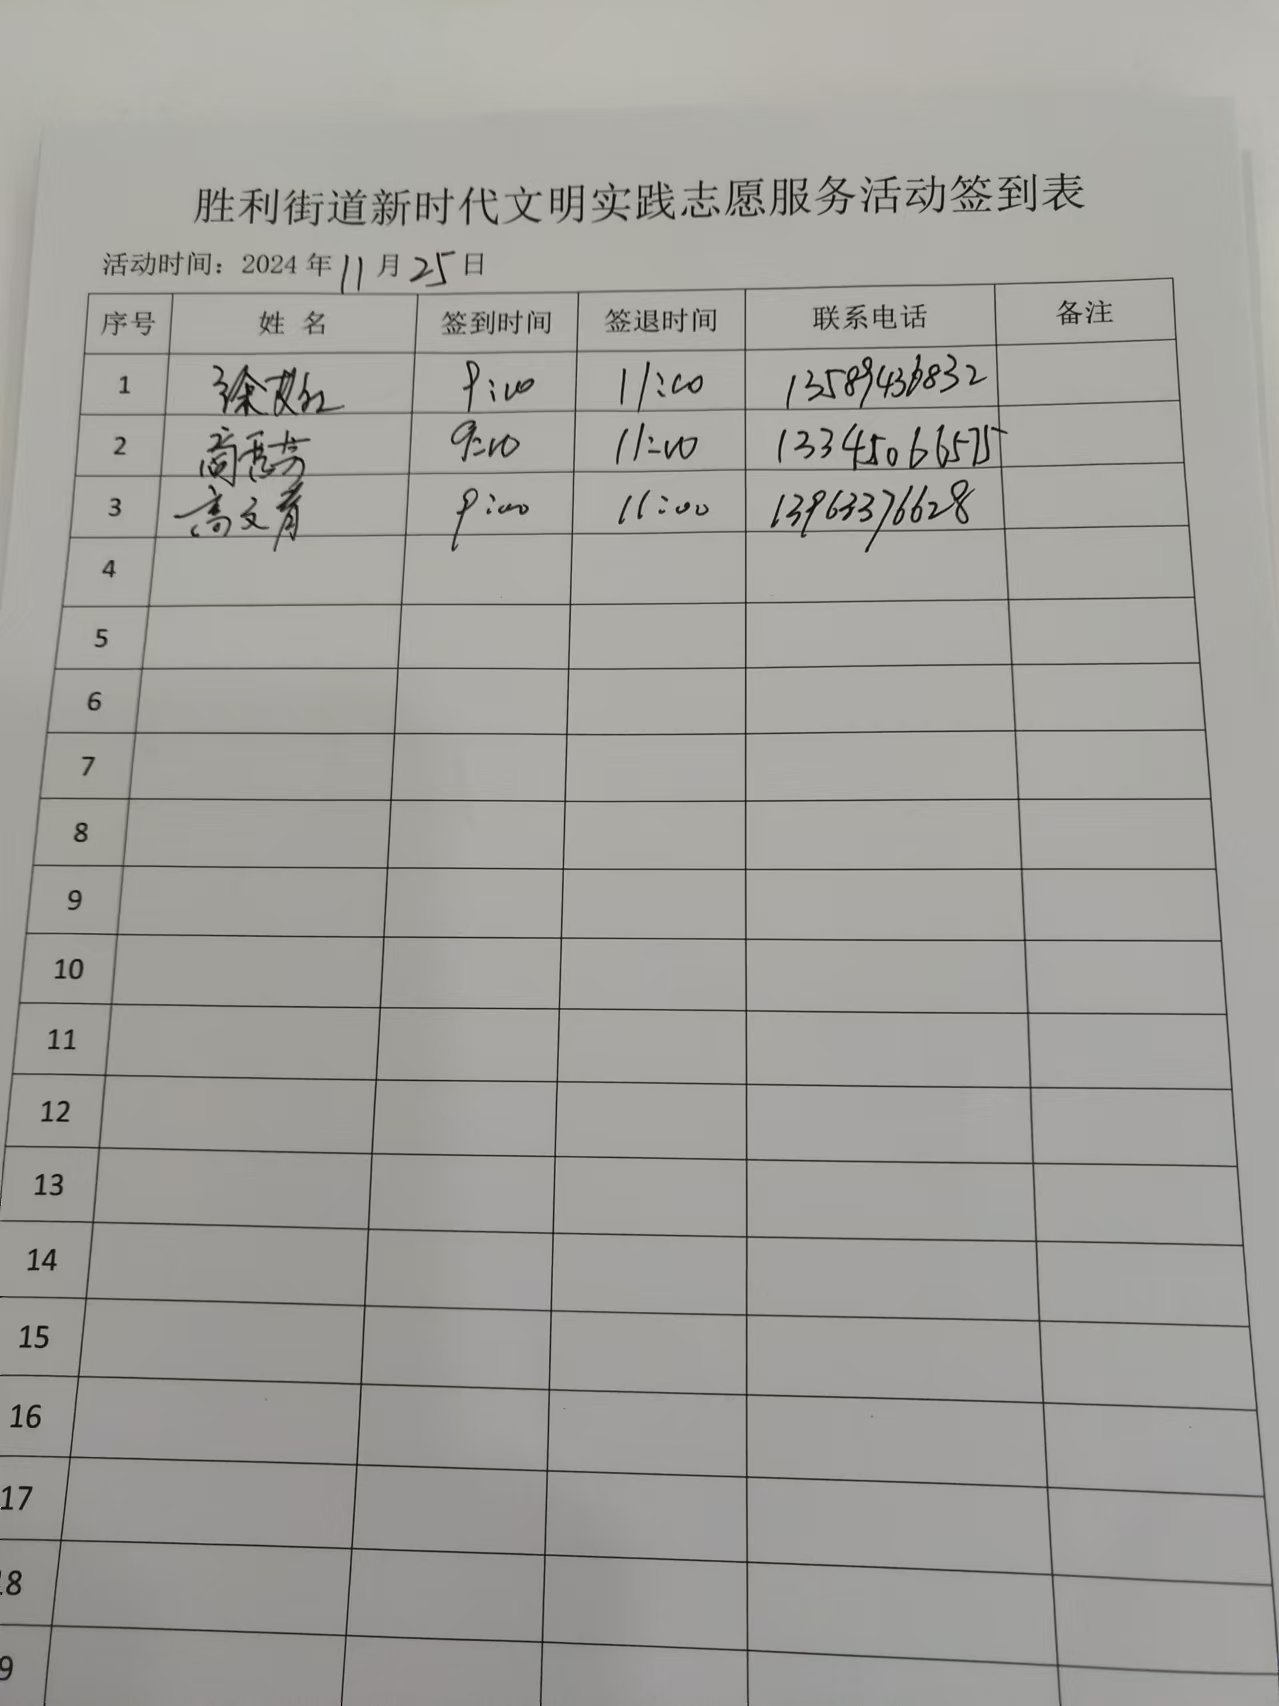 胜利街道新时代文明实践志愿服务活动签到表
活动时间：2024 年 11 月 25 日
序号 姓 名 签到时间 签退时间 联系电话 备注
1 徐 9:00 11:00 13589436832
2 高秀芳 9:00 11:00 13345066575
3 高文 9:00 11:00 13963376628
4
5
6
7
8
9
10
11
12
13
14
15
16
17
18
9